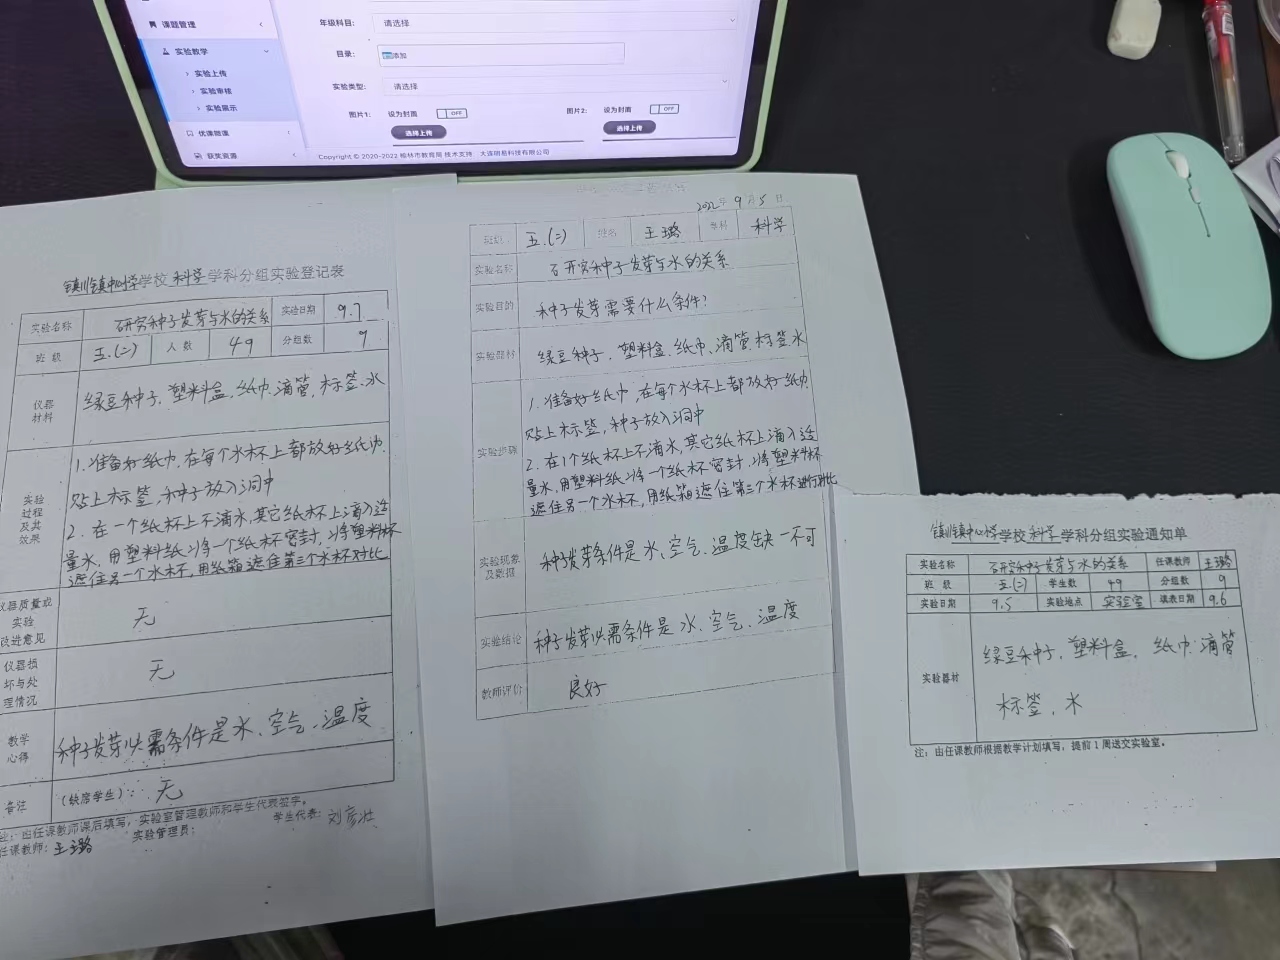 课题管理
实验教学
实验上传
实验审核
实验展示
优课晒课
获奖资源
年级科目: 请选择
目录: 添加
实验类型: 请选择
图片1: 设为封面 OFF
选择上传
图片2: 设为封面 OFF
选择上传
Copyright © 2020-2022 榆林市教育局 技术支持: 大连明易科技有限公司
镇川镇中心小学学校 科学 学科分组实验登记表
实验名称 研究种子发芽与水的关系 实验日期 9.7
班 级 五.(二) 人 数 49 分组数 9
仪器
材料
绿豆种子、塑料盒、纸巾、滴管、标签、水
实验
过程
及其
效果
1.准备好纸巾,在每个水杯上都放好纸巾
贴上标签,种子放入洞中
2.在一个纸杯上不滴水,其它纸杯上滴入适
量水,用塑料纸将一个纸杯密封,将塑料杯
遮住另一个水杯,用纸箱遮住第三个水杯对比
仪器质量或
实验
改进意见
无
仪器损
坏与处
理情况
无
教学
心得
种子发芽必需条件是水、空气、温度
备注 (缺席学生): 无
注:由任课教师课后填写,实验室管理教师和学生代表签字。
任课教师: 王璐 实验管理员: 学生代表: 刘彦洪
2022年9月5日
班级 五.(二) 姓名 王璐 学科 科学
实验名称 研究种子发芽与水的关系
实验目的 种子发芽需要什么条件?
实验器材 绿豆种子、塑料盒、纸巾、滴管、标签、水
实验步骤
1.准备好纸巾,在每个水杯上都放好纸巾
贴上标签,种子放入洞中
2.在1个纸杯上不滴水,其它纸杯上滴入适
量水,用塑料纸将一个纸杯密封,将塑料杯
遮住另一个水杯,用纸箱遮住第三个水杯进行对比
实验现象
及数据
种子发芽条件是水、空气、温度缺一不可
实验结论 种子发芽必需条件是水、空气、温度
教师评价 良好
镇川镇中心小学学校 科学 学科分组实验通知单
实验名称 研究种子发芽与水的关系 任课教师 王璐
班 级 五.(二) 学生数 49 分组数 9
实验日期 9.5 实验地点 实验室 填表日期 9.6
实验器材
绿豆种子、塑料盒、纸巾、滴管
标签、水
注:由任课教师根据教学计划填写,提前1周送交实验室。